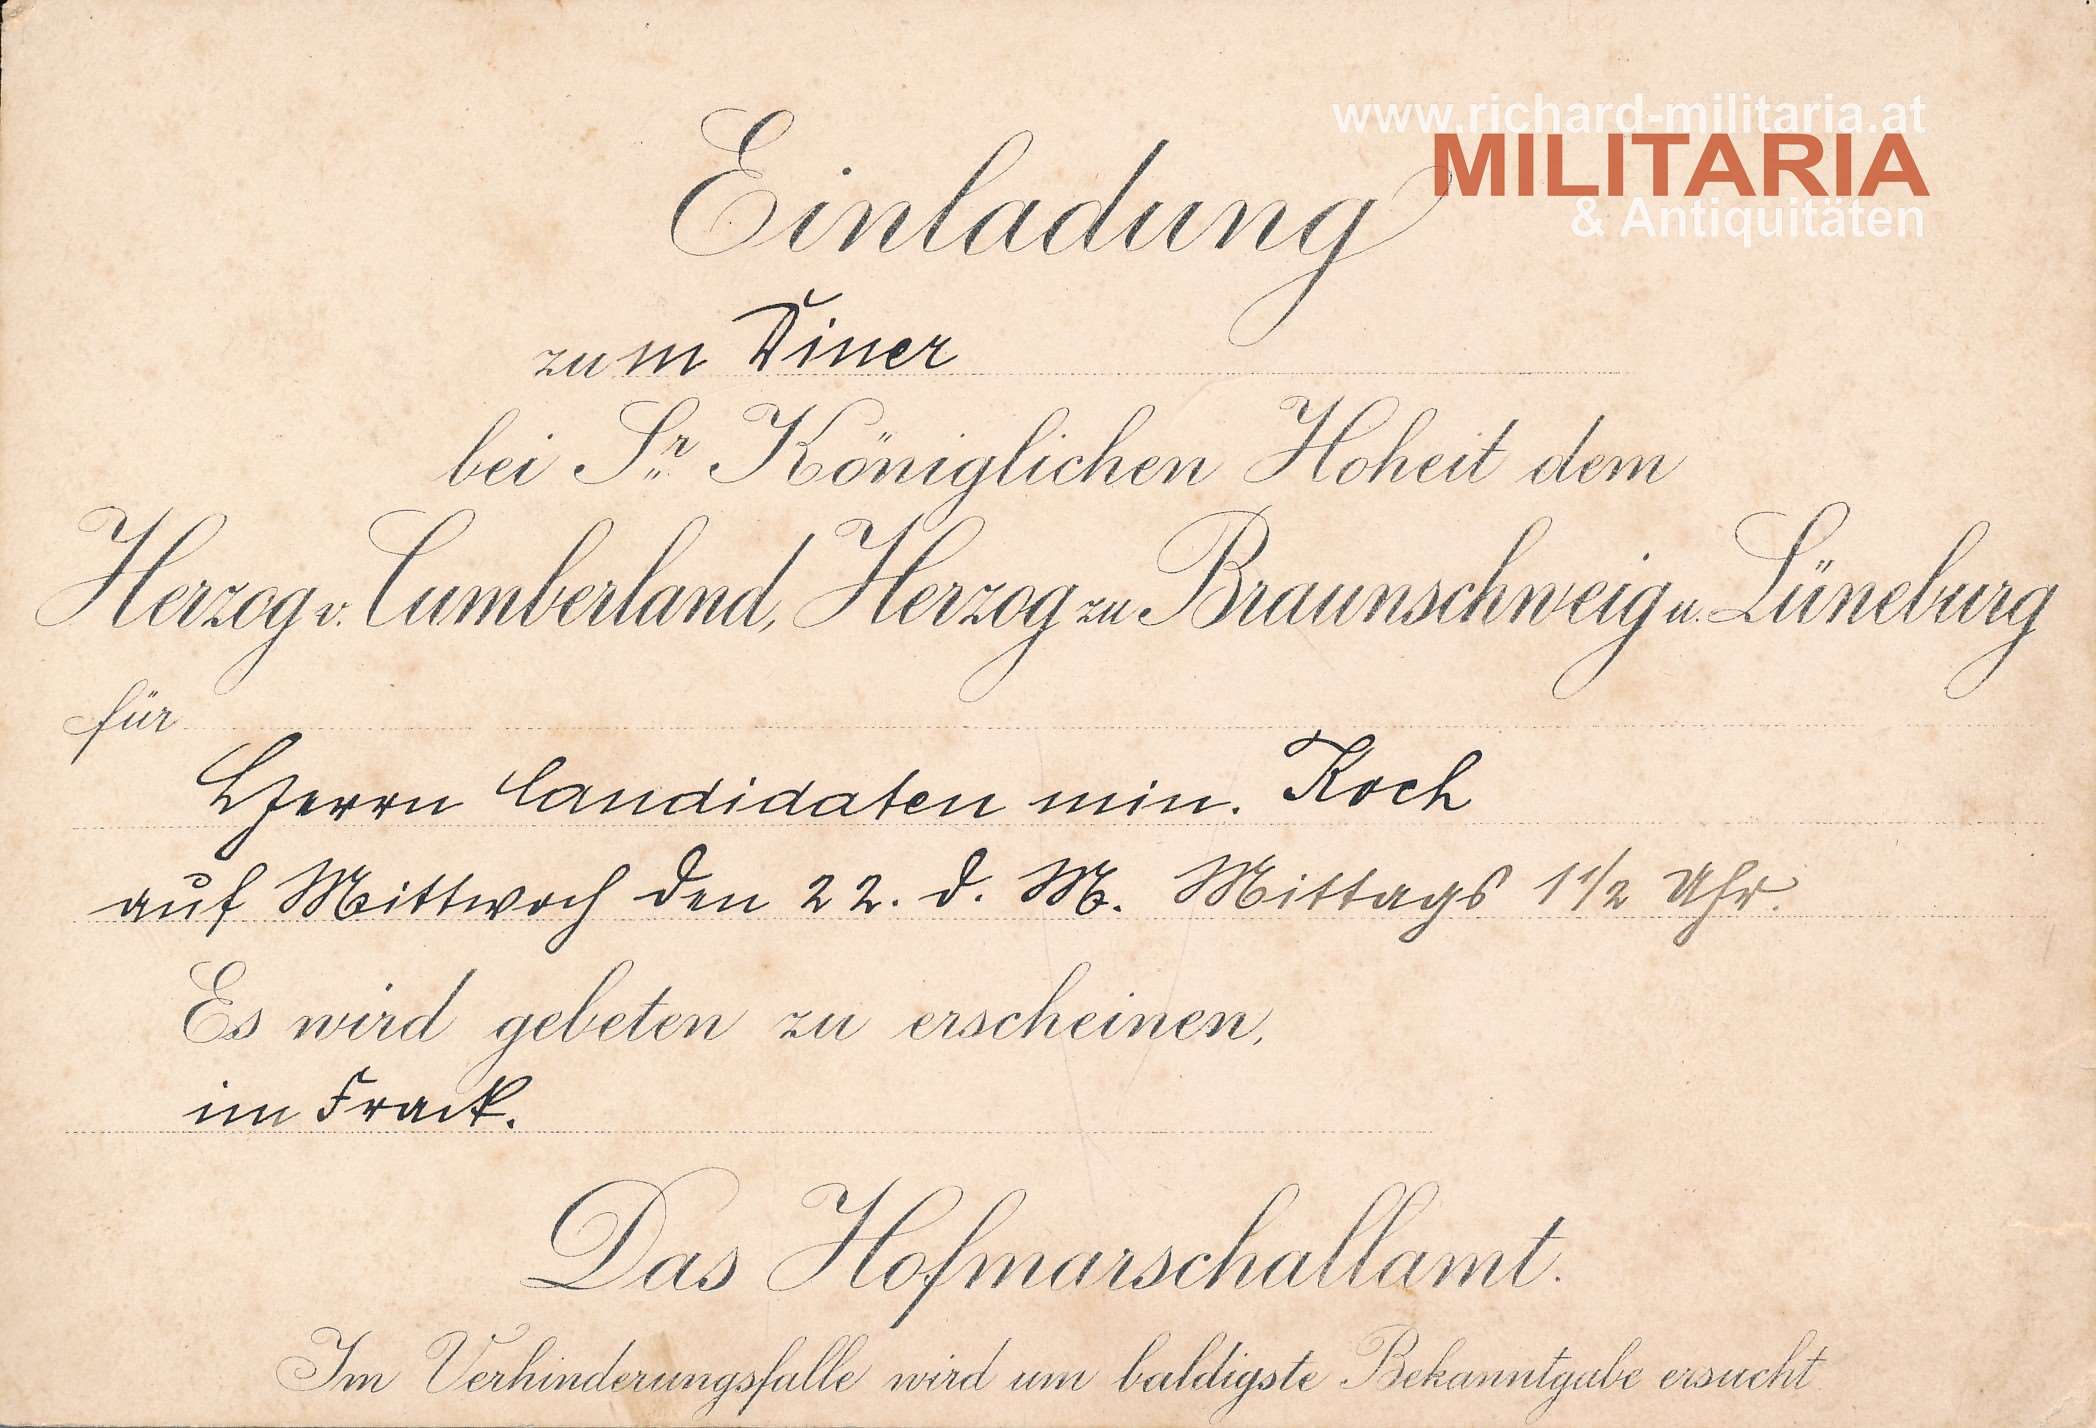 www.richard-militaria.at
MILITARIA
& Antiquitäten
Einladung
zum Diner
bei Sr. Königlichen Hoheit dem
Herzog v. Cumberland, Herzog zu Braunschweig u. Lüneburg
für
Herrn Candidaten min. Koch
auf Mittwoch den 22. d. M. Mittags 1 1/2 Uhr.
Es wird gebeten zu erscheinen,
im Frack.
Das Hofmarschallamt.
Im Verhinderungsfalle wird um baldigste Bekanntgabe ersucht